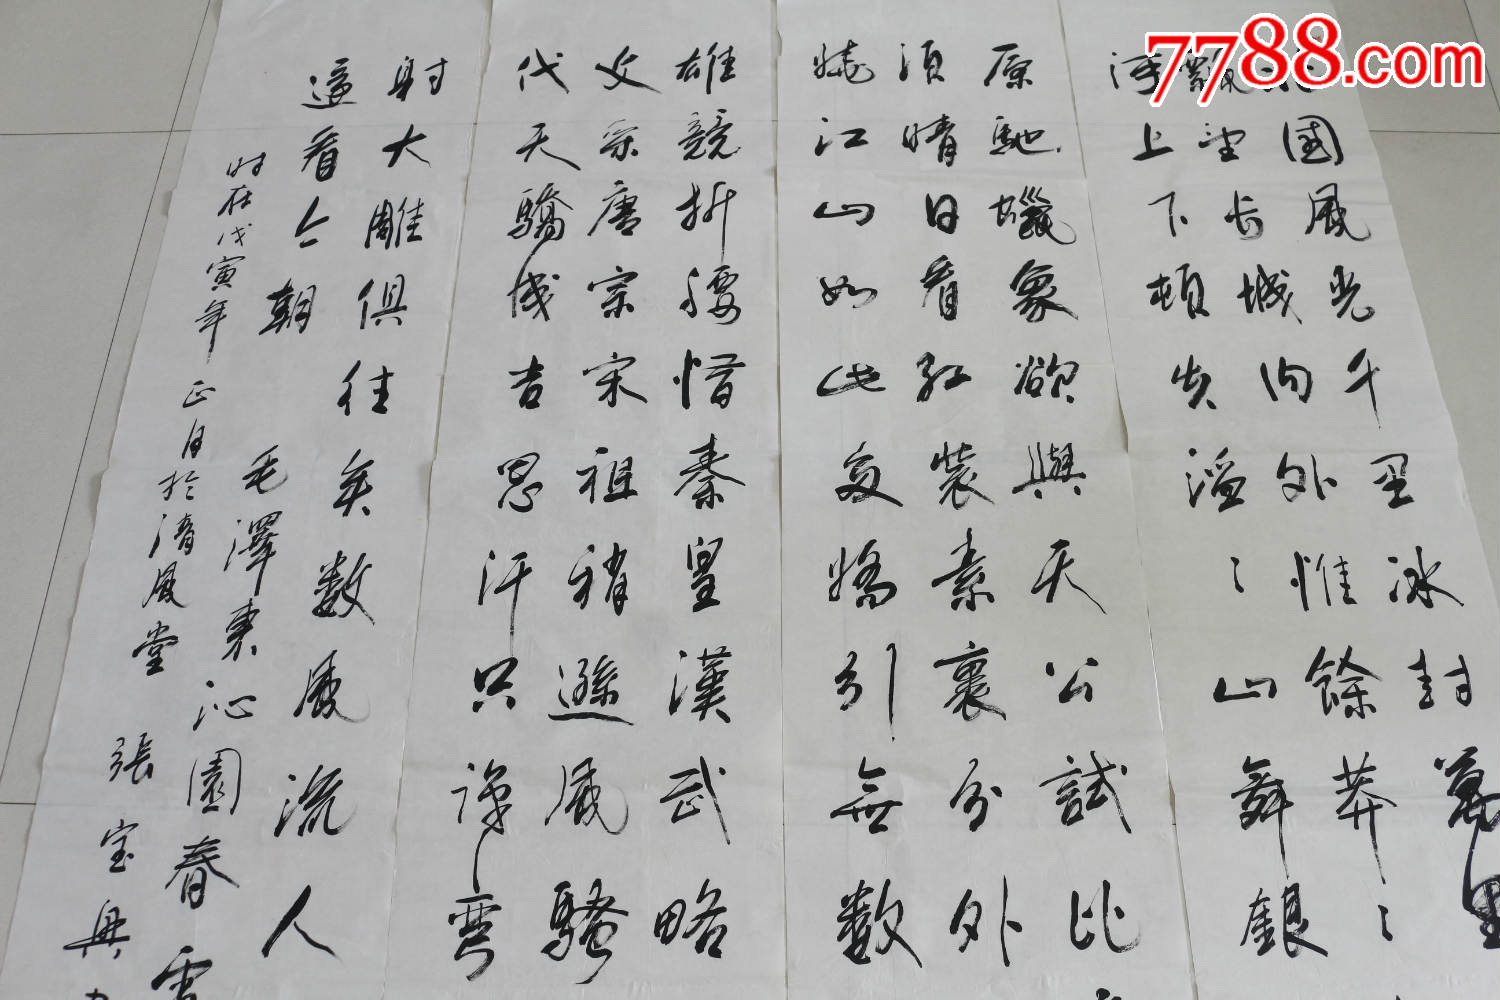 7788.com
北國風光千里冰封萬里
飄望長城內外惟餘莽〻
河上下頓失滔〻山舞銀
原馳蠟象欲與天公試比
須晴日看紅裝素裹分外
嬈江山如此多嬌引無數
雄競折腰惜秦皇漢武略
文采唐宗宋祖稍遜風騷
代天驕成吉思汗只識彎
射大雕俱往矣數風流人
還看今朝 毛澤東沁園春雪
時在戊寅年正月於清風堂 張宝興